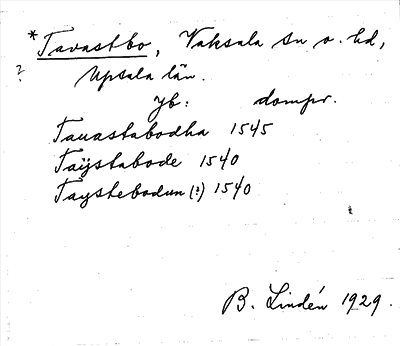 *Tavastbo, Vaksala sn o. hd,
? Upsala län.
Yb: dompr.
Tauastabodha 1545
Taÿstabode 1540
Taystebodun (?) 1540
B. Lindén 1929.